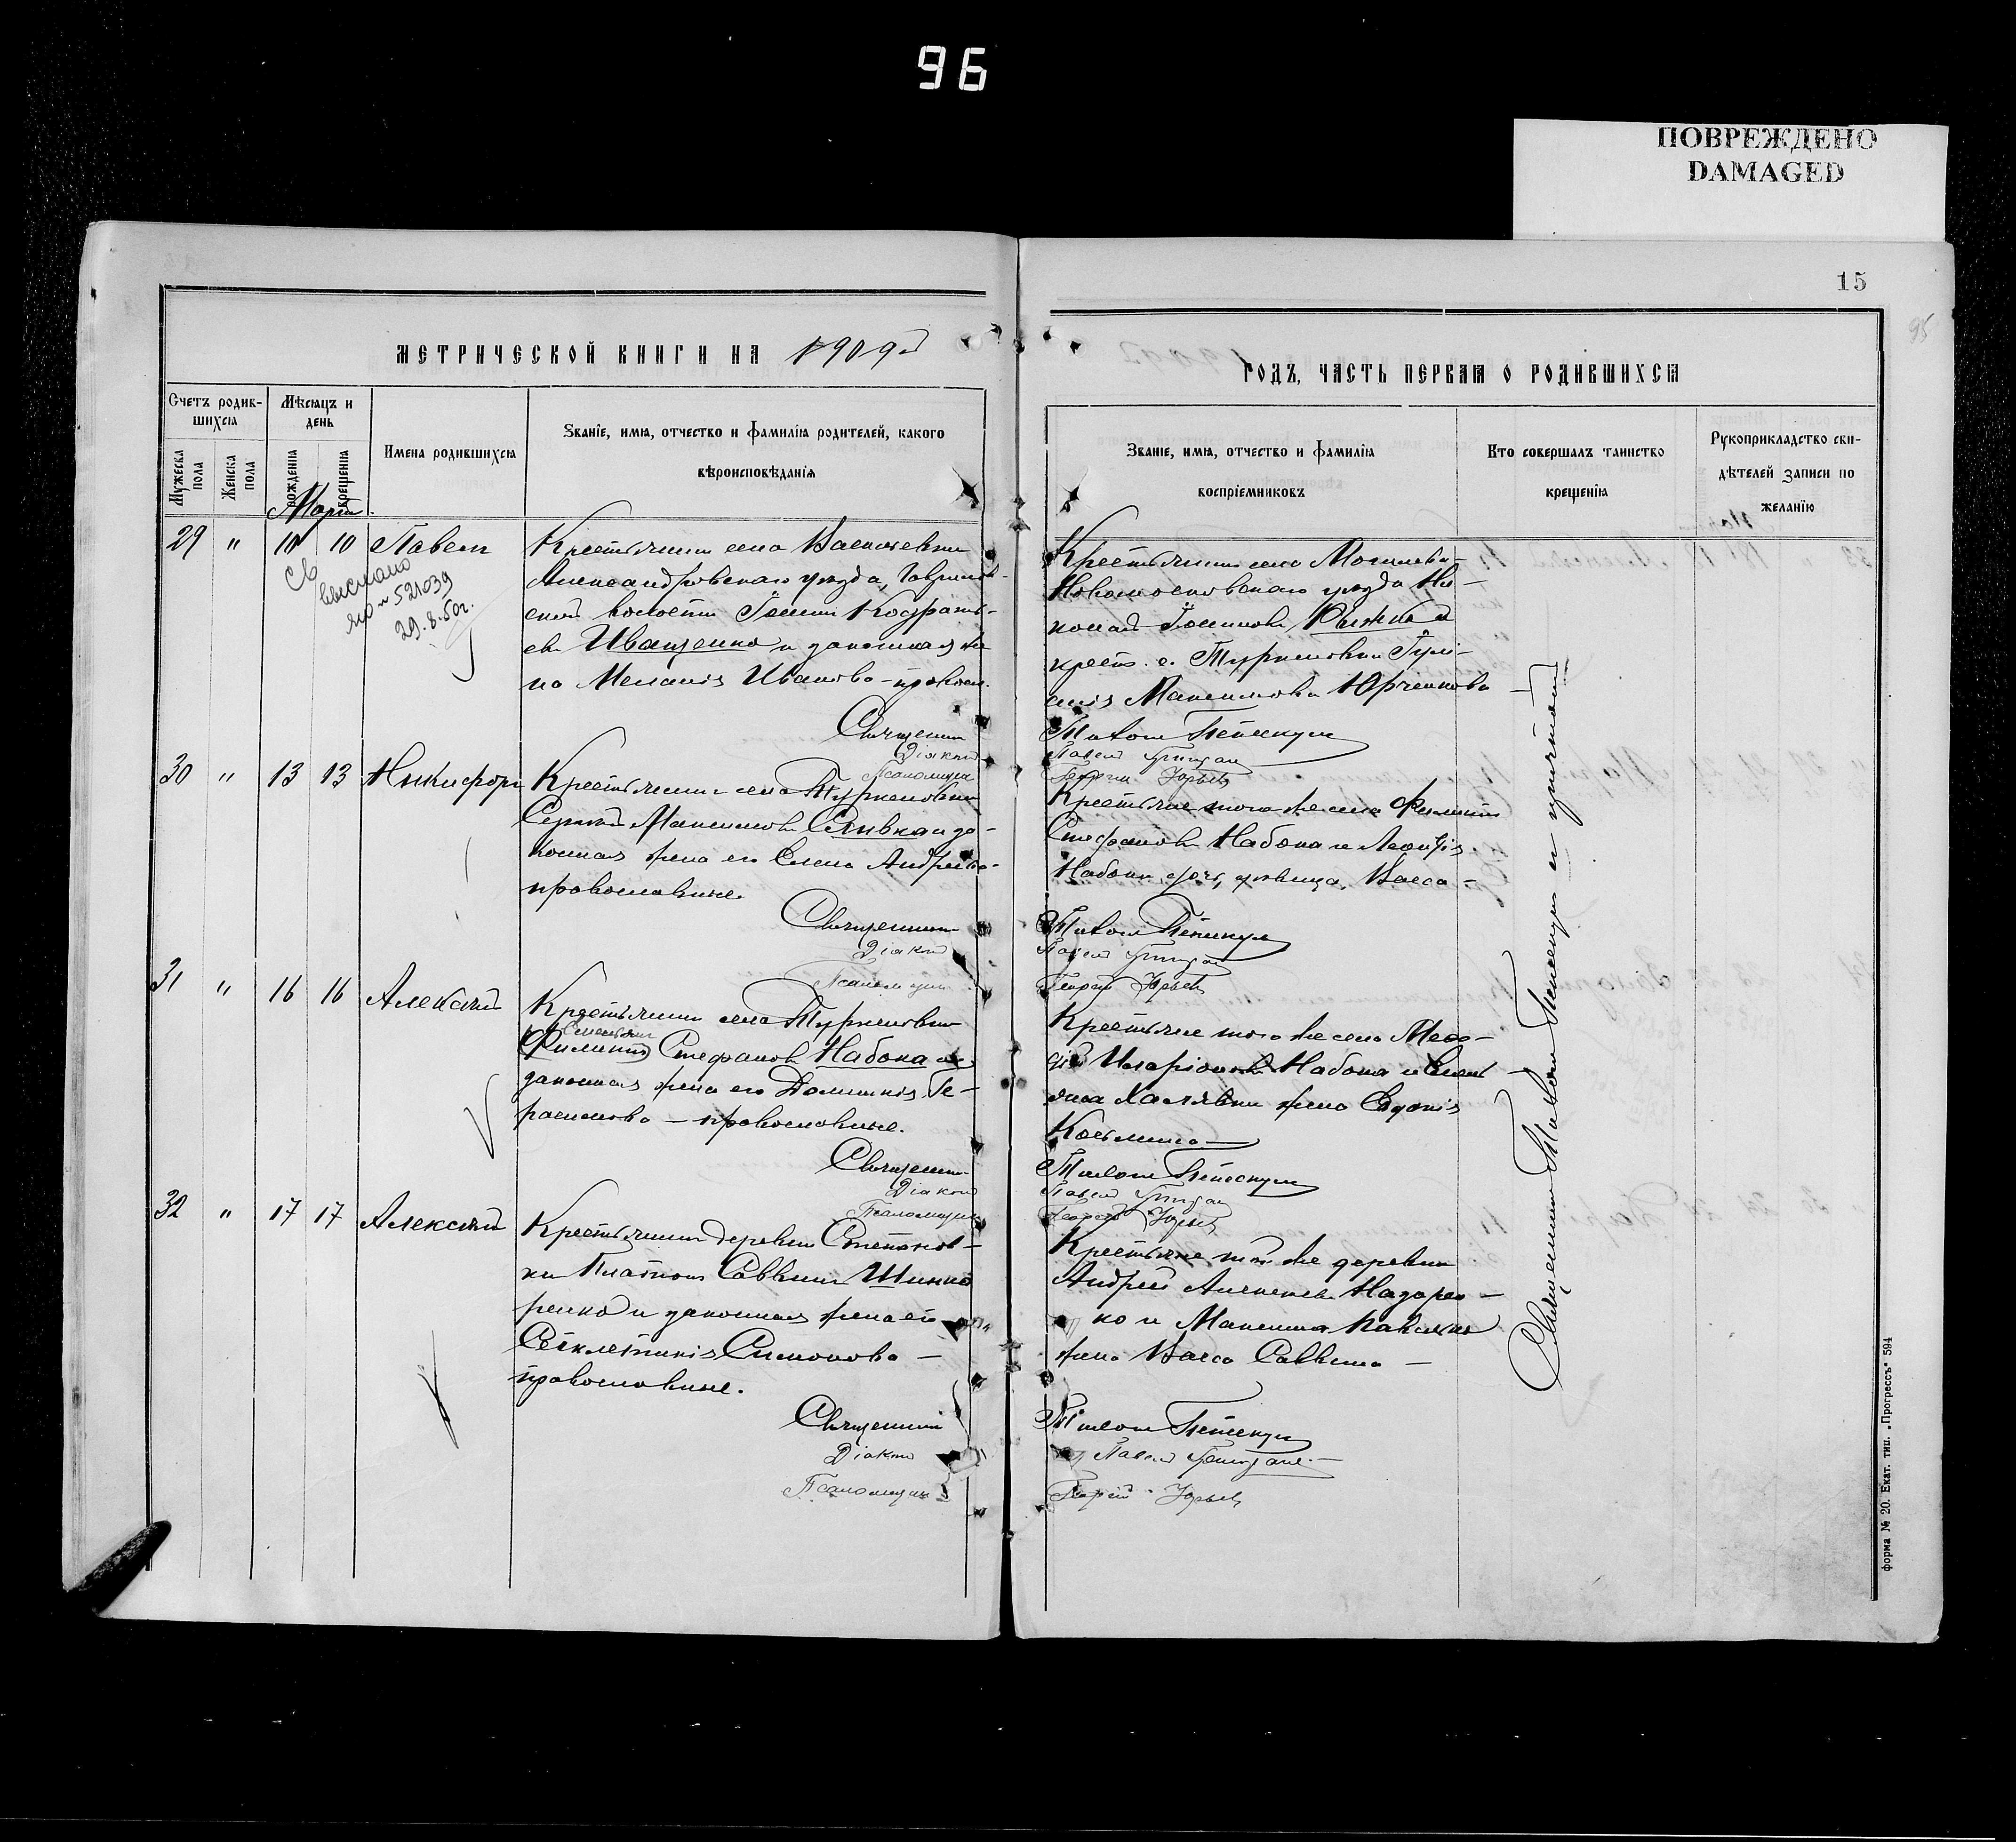 96
ПОВРЕЖДЕНО
DAMAGED
15
95
МЕТРИЧЕСКОЙ КНИГИ НА 1909й
ГОДЪ, ЧАСТЬ ПЕРВАЯ О РОДИВШИХСЯ
Счетъ родив-
шихся
Мужеска
пола
Женска
пола
Мѣсяцъ и
день
рожденія
крещенія
Имена родившихся
Званіе, имя, отчество и фамилія родителей, какого
вѣроисповѣданія
Званіе, имя, отчество и фамилія
воспріемниковъ
Кто совершалъ таинство
крещенія
Рукоприкладство сви-
дѣтелей записи по
желанію
Мартъ
29 " 10 10 Павелъ
Св
выслано
521039
29.8.50г.
Крестьянинъ села Васильевки
Александровскаго уѣзда, Гавриловской волости
Иващенко и законная же-
на Меланія Иванова - правосл.
Священникъ
Діаконъ
Псаломщикъ
Крестьянинъ села
Новомосковскаго уѣзда Ни-
колай
крест. с. Туркеновки
Максимова Юрченкова
Павелъ
Георгій Юрьевъ
30 " 13 13 Никифоръ
Крестьянинъ села Туркеновки
Сергій Максимовъ Сливка и за-
конная жена его Елена Андреева
православные.
Священникъ
Діаконъ
Псаломщикъ
Крестьяне того же села Филиппъ
Стефановъ Набока и Леонтія
Набоки дочь, дѣвица, Васса -
Павелъ
Георгій Юрьевъ
31 " 16 16 Алексій
Крестьянинъ села Туркеновки
Филиппъ Стефановъ Набока и
законная жена его Домникія Ге-
расимова - православные.
Священникъ
Діаконъ
Псаломщикъ
Крестьяне того же села Меѳо-
дій Иларіоновъ Набока и
Халявки жена Евдокія
Косьмина
Павелъ
Георгій Юрьевъ
32 " 17 17 Алексій
Крестьянинъ деревни Степанов-
ки Платонъ Саввинъ Шинка
ренко и законная жена его
Синклитикія Симонова -
православные.
Священникъ
Діаконъ
Псаломщикъ
Крестьяне той же деревни
Андрей Алексеевъ Назарен-
ко и Максима
жена Васса Саввина -
Павелъ
Георгій Юрьевъ
форма № 20. Екат. тип. „Прогрессъ" 594